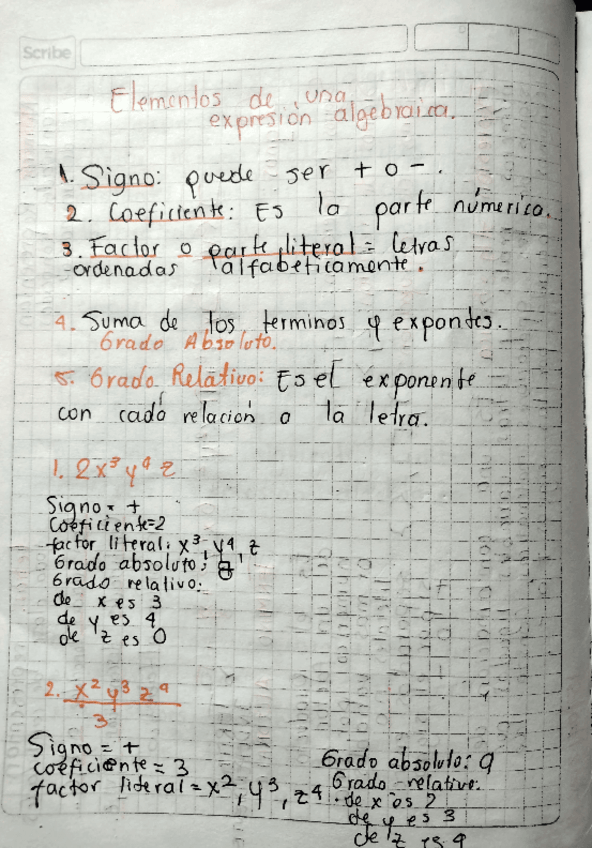 Scribe
Elementos de una
expresión algebraica.
1. Signo: puede ser + o - .
2. Coeficiente: Es la parte númerica.
3. Factor o parte literal = letras
ordenadas alfabeticamente.
4. Suma de los terminos y expontes.
Grado Absoluto.
5. Grado Relativo: Es el exponente
con cada relación a la letra.
1. 2x³ y⁴ z
Signo = +
Coeficiente=2
factor literal: x³, y⁴, z
Grado absoluto:
Grado relativo:
de x es 3
de y es 4
de z es 0
2. x² y³ z⁴
3
Signo = +
coeficiente = 3
factor literal = x², y³, z⁴
Grado absoluto: 9
Grado relativo:
de x es 2
de y es 3
de z es 4